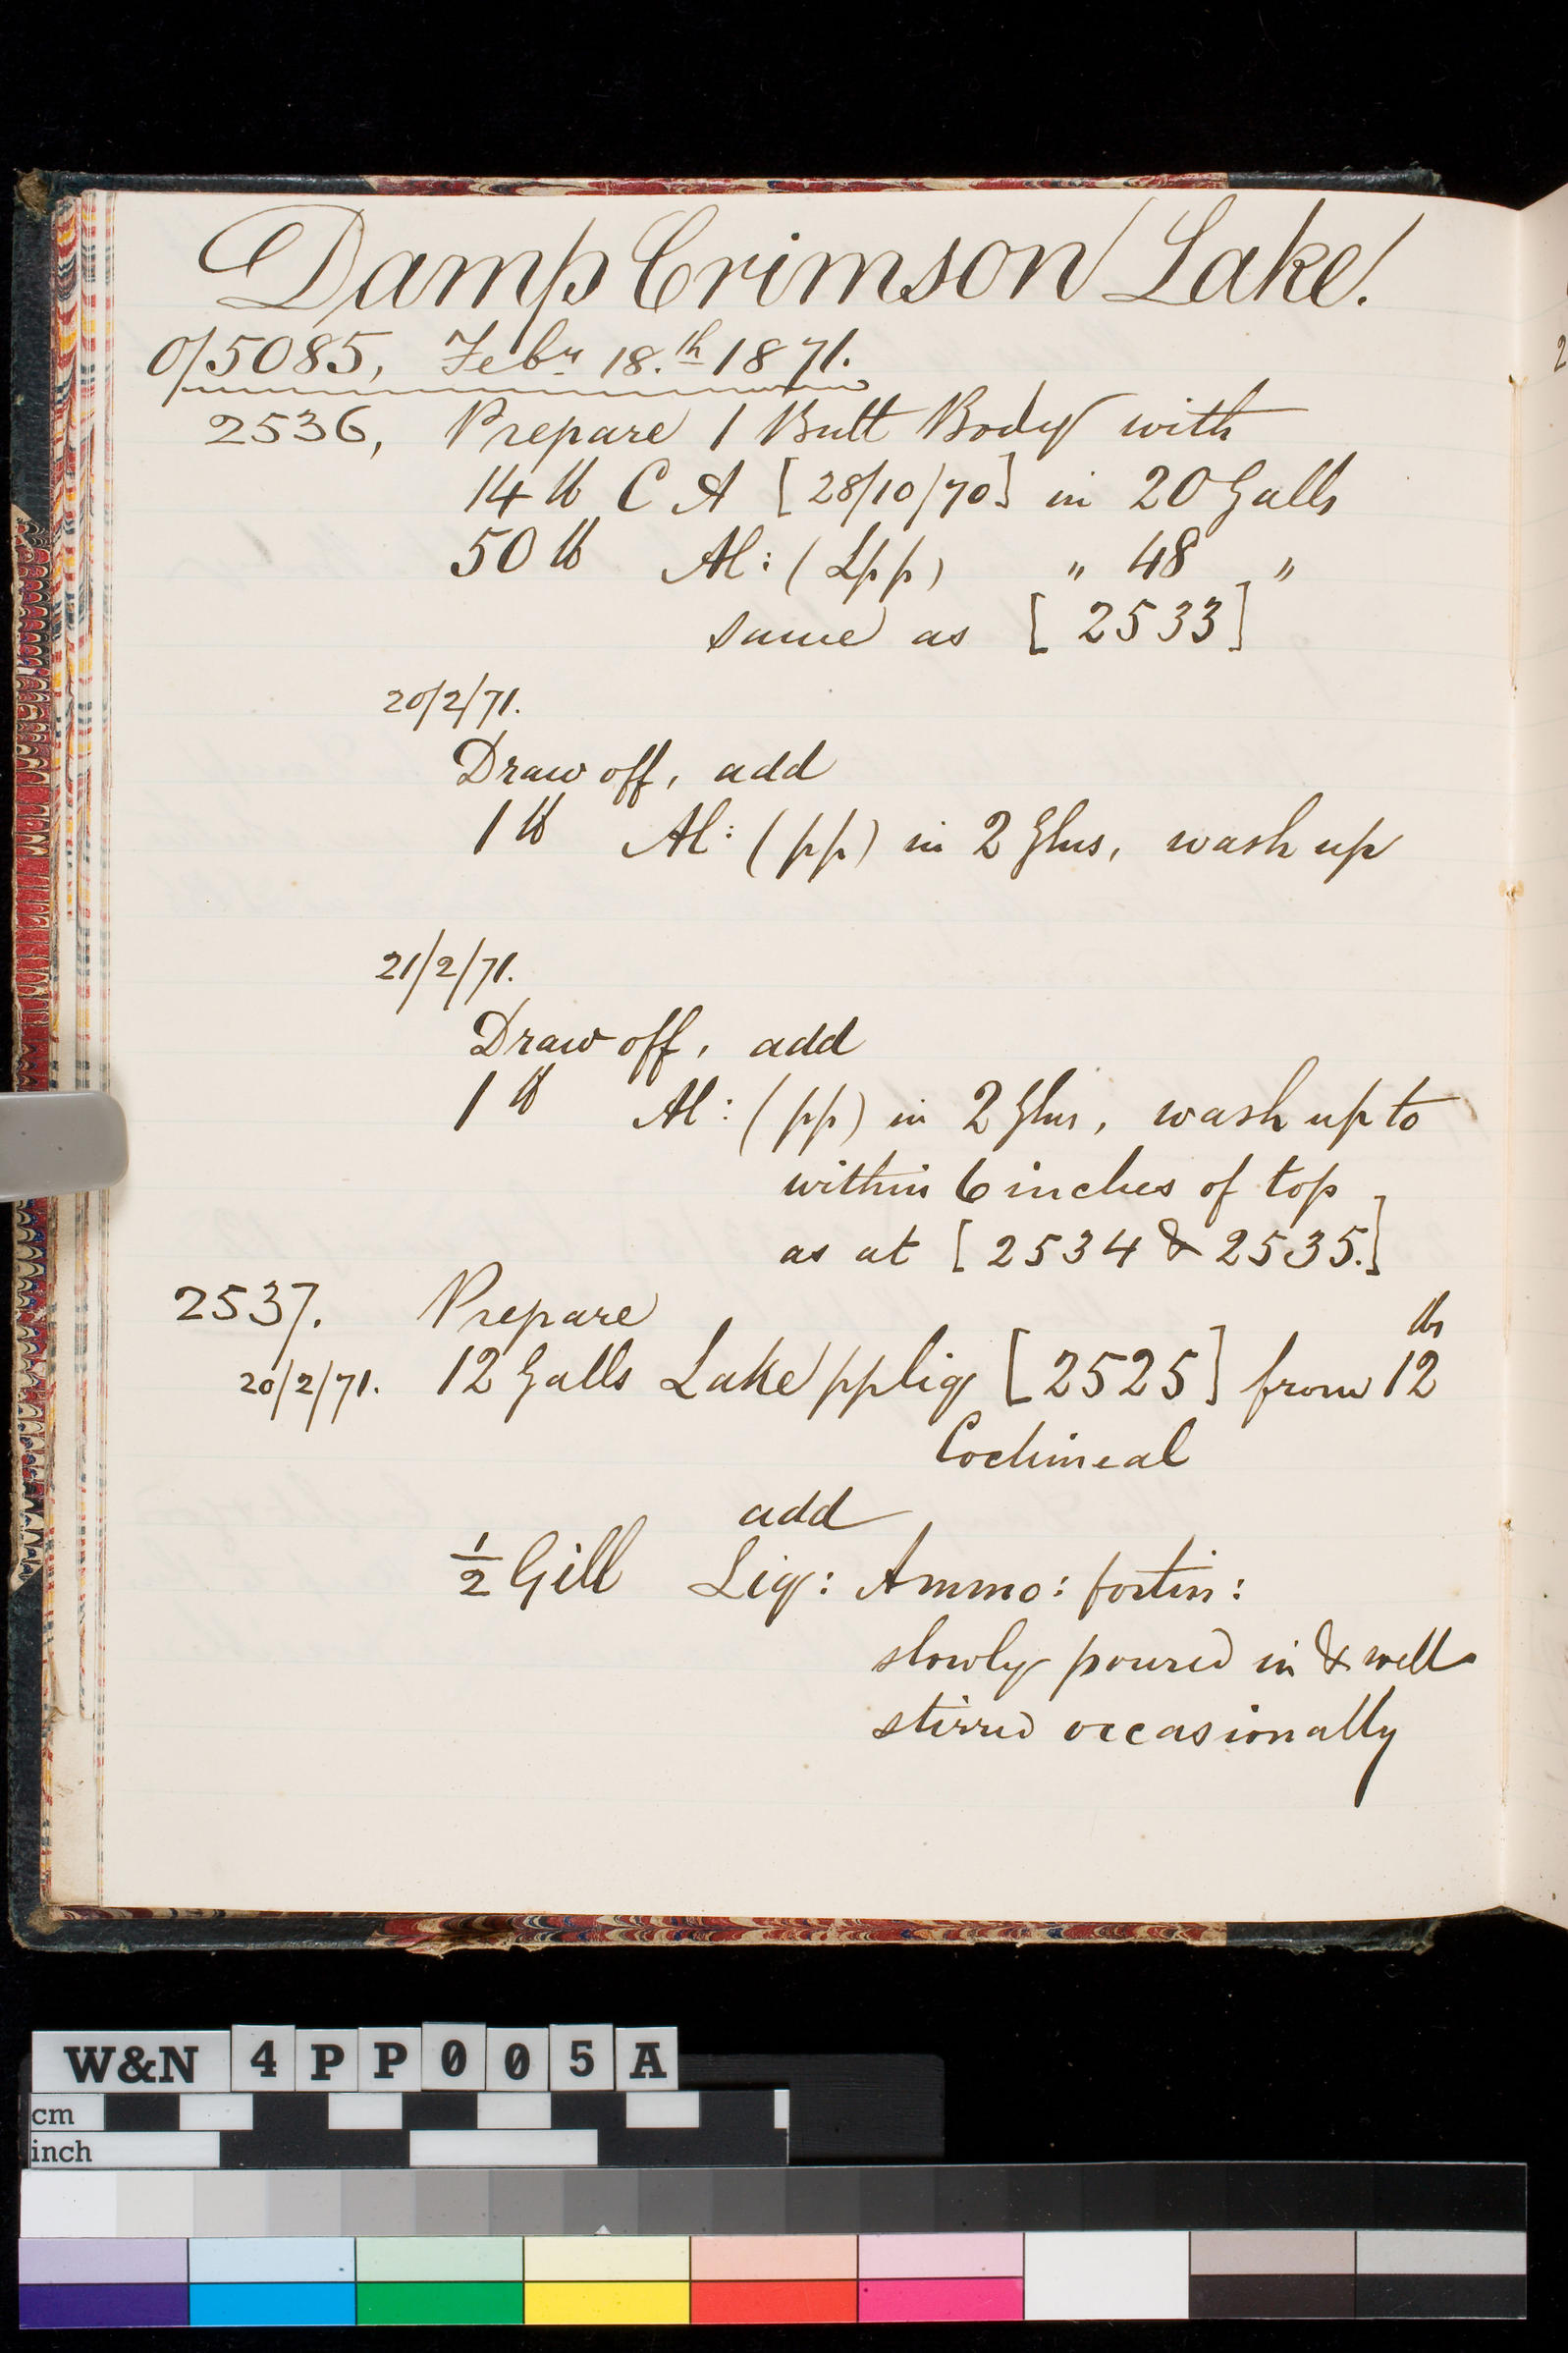 Damp Crimson Lake.
O/5085, Febry 18.th 1871.
2536, Prepare 1 Butt Body with
14 lb C A [28/10/70] in 20 Galls
50 lb Al: (Lpp) " 48 "
same as [2533]
20/2/71.
Draw off, add
1 lb Al: (pp) in 2 Glns, wash up
21/2/71.
Draw off, add
1 lb Al: (pp) in 2 Glns, wash up to
within 6 inches of top
as at [2534 & 2535.]
2537. Prepare
20/2/71. 12 Galls Lake pp liq [2525] from 12 lbs
Cochineal
add
½ Gill Liq: Ammo: fortis:
slowly poured in & well
stirred occasionally
W&N 4PP005A
cm
inch